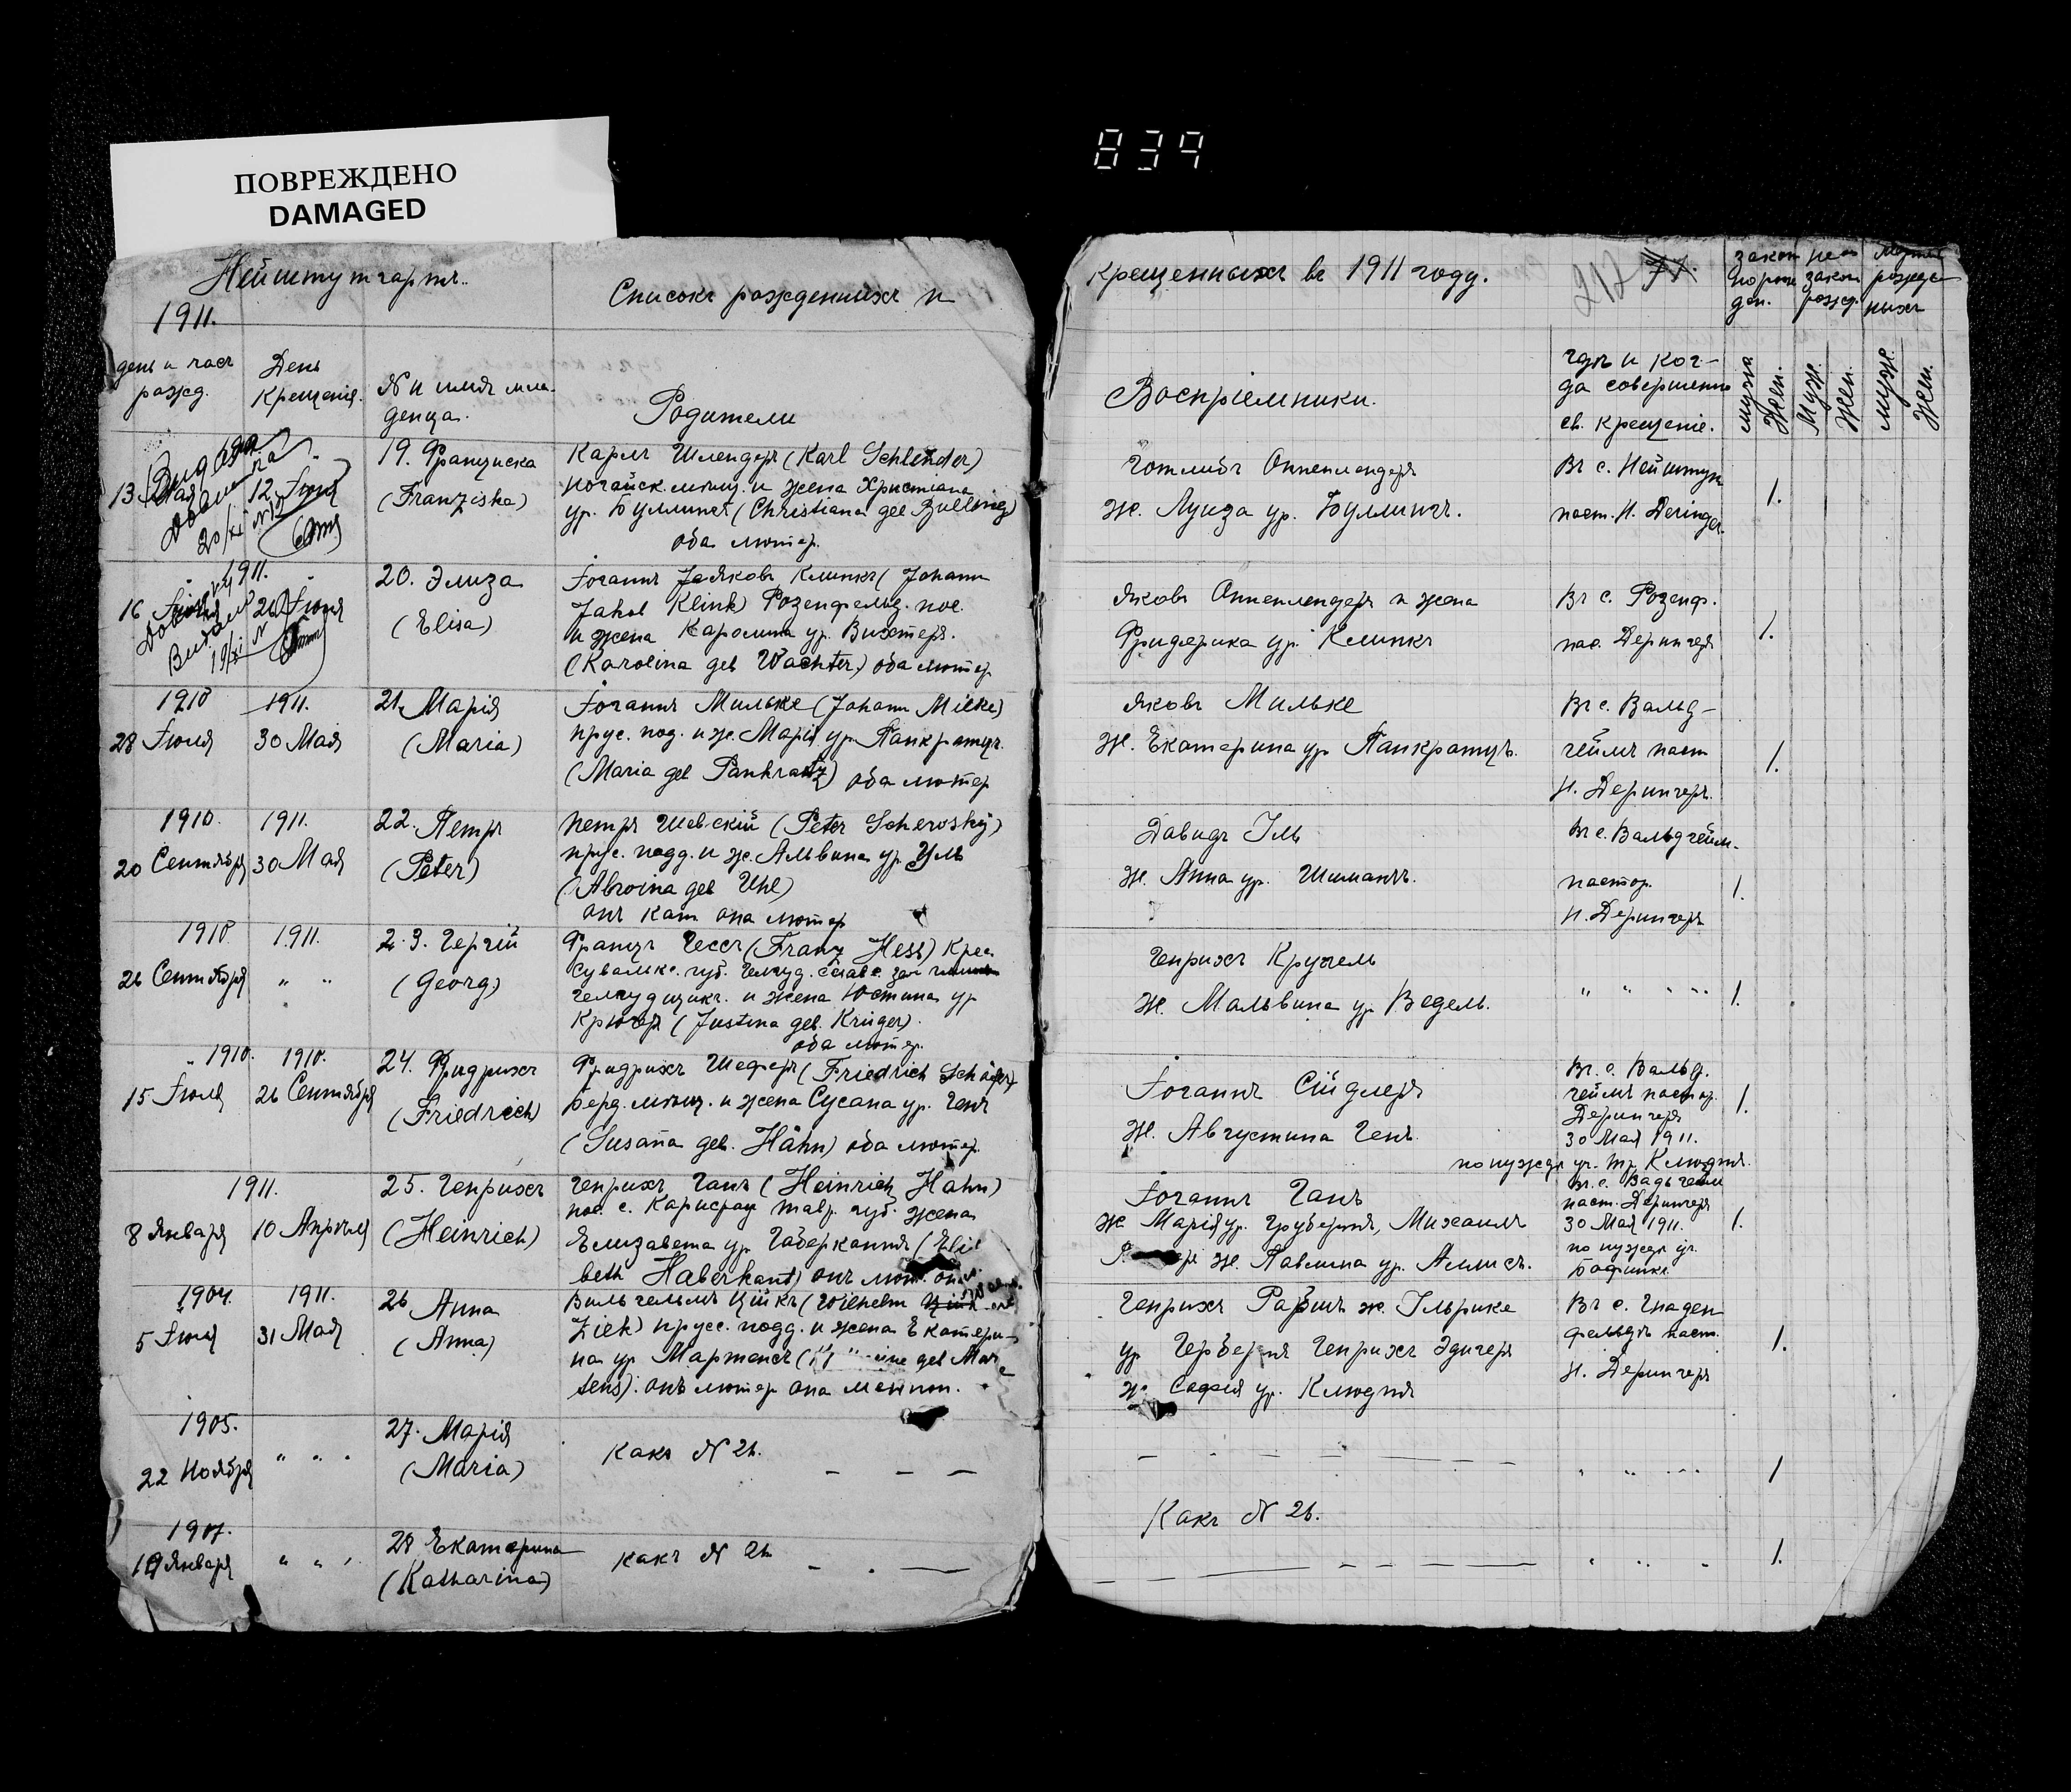 ПОВРЕЖДЕНО
DAMAGED
839
Нейштутгартъ.
1911.
Списокъ рожденныхъ и
день и часъ
рожд.
День
Крещенія.
№ и имя мла-
денца.
Родители
1911.
13 Мая
12 Іюня
19. Франциска
(Franziska)
Карлъ Шлендеръ (Karl Schlender)
ногайск. мѣщ. и жена Христіана
ур. Буллингъ (Christiana geb Bulling)
оба лютер.
1911.
16
26 Іюня
20. Элиза
(Elisa)
Іоганнъ Яковъ Клинкъ (Johann
Jakob Klink) Розенфельд. пос.
и жена Каролина ур. Вихтеръ.
(Karolina geb Wachter) оба лютер.
1910
28 Іюля
1911.
30 Мая
21. Марія
(Maria)
Іоганнъ Мильке (Johann Mielke)
прус. под. и ж. Марія ур. Панкратцъ.
(Maria geb Pankratz) оба лютер
1910.
20 Сентября
1911.
30 Мая
22. Петръ
(Peter)
Петръ Шевскій (Peter Scheroský)
прус. подд. и ж. Альвина ур Уль
(Alwina geb Uhl)
онъ кат она лютер
1910
26 Сентября
1911.
" "
23. Георгій
(Georg)
Францъ Гессъ (Franz Hess) Крес.
Сувалкс. губ.
и жена Юстина ур
Крюгеръ (Justina geb. Krüger).
оба лютер.
1910.
15 Іюля
1910.
26 Сентября
24. Фридрихъ
(Friedrich)
Фридрихъ Шеферъ (Friedrich Schäfer)
берд. мѣщ. и жена Сусана ур. Генъ
(Susaña geb. Hähn) оба лютер.
1911.
8 Января
10 Апрѣля
25. Генрихъ
(Heinrich)
Генрихъ Ганъ (Heinrich Hahn)
пос. с. Карлсруэ тавр. губ. жена
Елизавета ур Габеркантъ (Elisa
beth Haberkant) онъ лют. она
1904.
5 Іюля
1911.
31 Мая
26 Анна
(Anna)
Вильгельмъ Цікъ (Wilhelm
Ziek) прусс. подд. и жена Екатери-
на ур Мартенсъ ( geb Mar
tens). онъ лютер она меннон.
1905.
22 Ноября
" " "
27. Марія
(Maria)
Какъ № 26.
1907.
19 Января
" " "
28 Екатерина
(Katharina)
какъ № 26
крещенныхъ въ 1911 году.
217 77.
закон
порож
ден.
неза
закон
рожд.
мертво
рожден
ныхъ
Воспріемники.
гдѣ и ког-
да совершенно
св. крещеніе.
мужа
Жен.
Муж.
жен.
муже.
жен.
Готлибъ Оппенлендеръ
ж. Луиза ур. Буллингъ.
Въ с. Нейштут
паст. Н. Deringer.
1.
Яковъ Оппенлендеръ и жена
Фридерика ур. Клинкъ
Въ с. Розенф.
пас. Дерингеръ
1.
Яковъ Мильке
Ж. Екатерина ур Панкратцъ.
Въ с. Вальд-
геймъ паст
Н. Дерингеръ.
1.
Давидъ Іль
Ж. Анна ур. Шиманъ.
Въ с. Вальдгейм.
пастор.
Н. Дерингеръ
1.
Генрихъ Кругель
ж. Мальвина ур Ведель.
" " " "
1.
Іоганнъ Сійдлеръ
Ж. Августина Генъ
Въ. с. Вальд.
геймъ пастор.
Дерингеръ
30 Мая 1911.
по нуждѣ уч. Тр. Клюдтъ.
1.
Іоганнъ Ганъ
ж Марія ур. Грубертъ, Михаилъ
ж. Павлина ур. Аллисъ.
Въ. с. Вальдгейм
паст. Дерингеръ
30 Мая 1911.
по нуждѣ уч.
1.
Генрихъ Рабшъ ж. Ільрике
ур Гербертъ Генрихъ Эдигеръ
ж. Софія ур. Клюдтъ
Въ с. Гнаден
фельдъ паст.
Н. Дерингеръ
1.
" " "
1
Какъ № 26.
" " "
1.